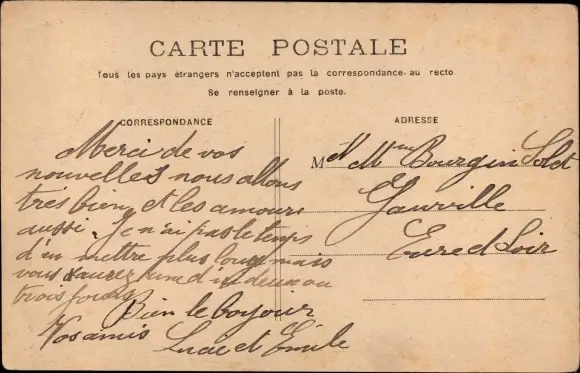 CARTE POSTALE
Tous les pays étrangers n'acceptent pas la correspondance au recto
Se renseigner à la poste.
CORRESPONDANCE
Merci de vos
nouvelles nous allons
très bien et les amours
aussi. Je n'ai pas le temps
d'en mettre plus long mais
vous aurez une d'in deux ou
trois jours
Bien le bojour
Vos amis Lucie et Emile
ADRESSE
M et Mme Bourgin Solet
Gauville
Eure et Loir